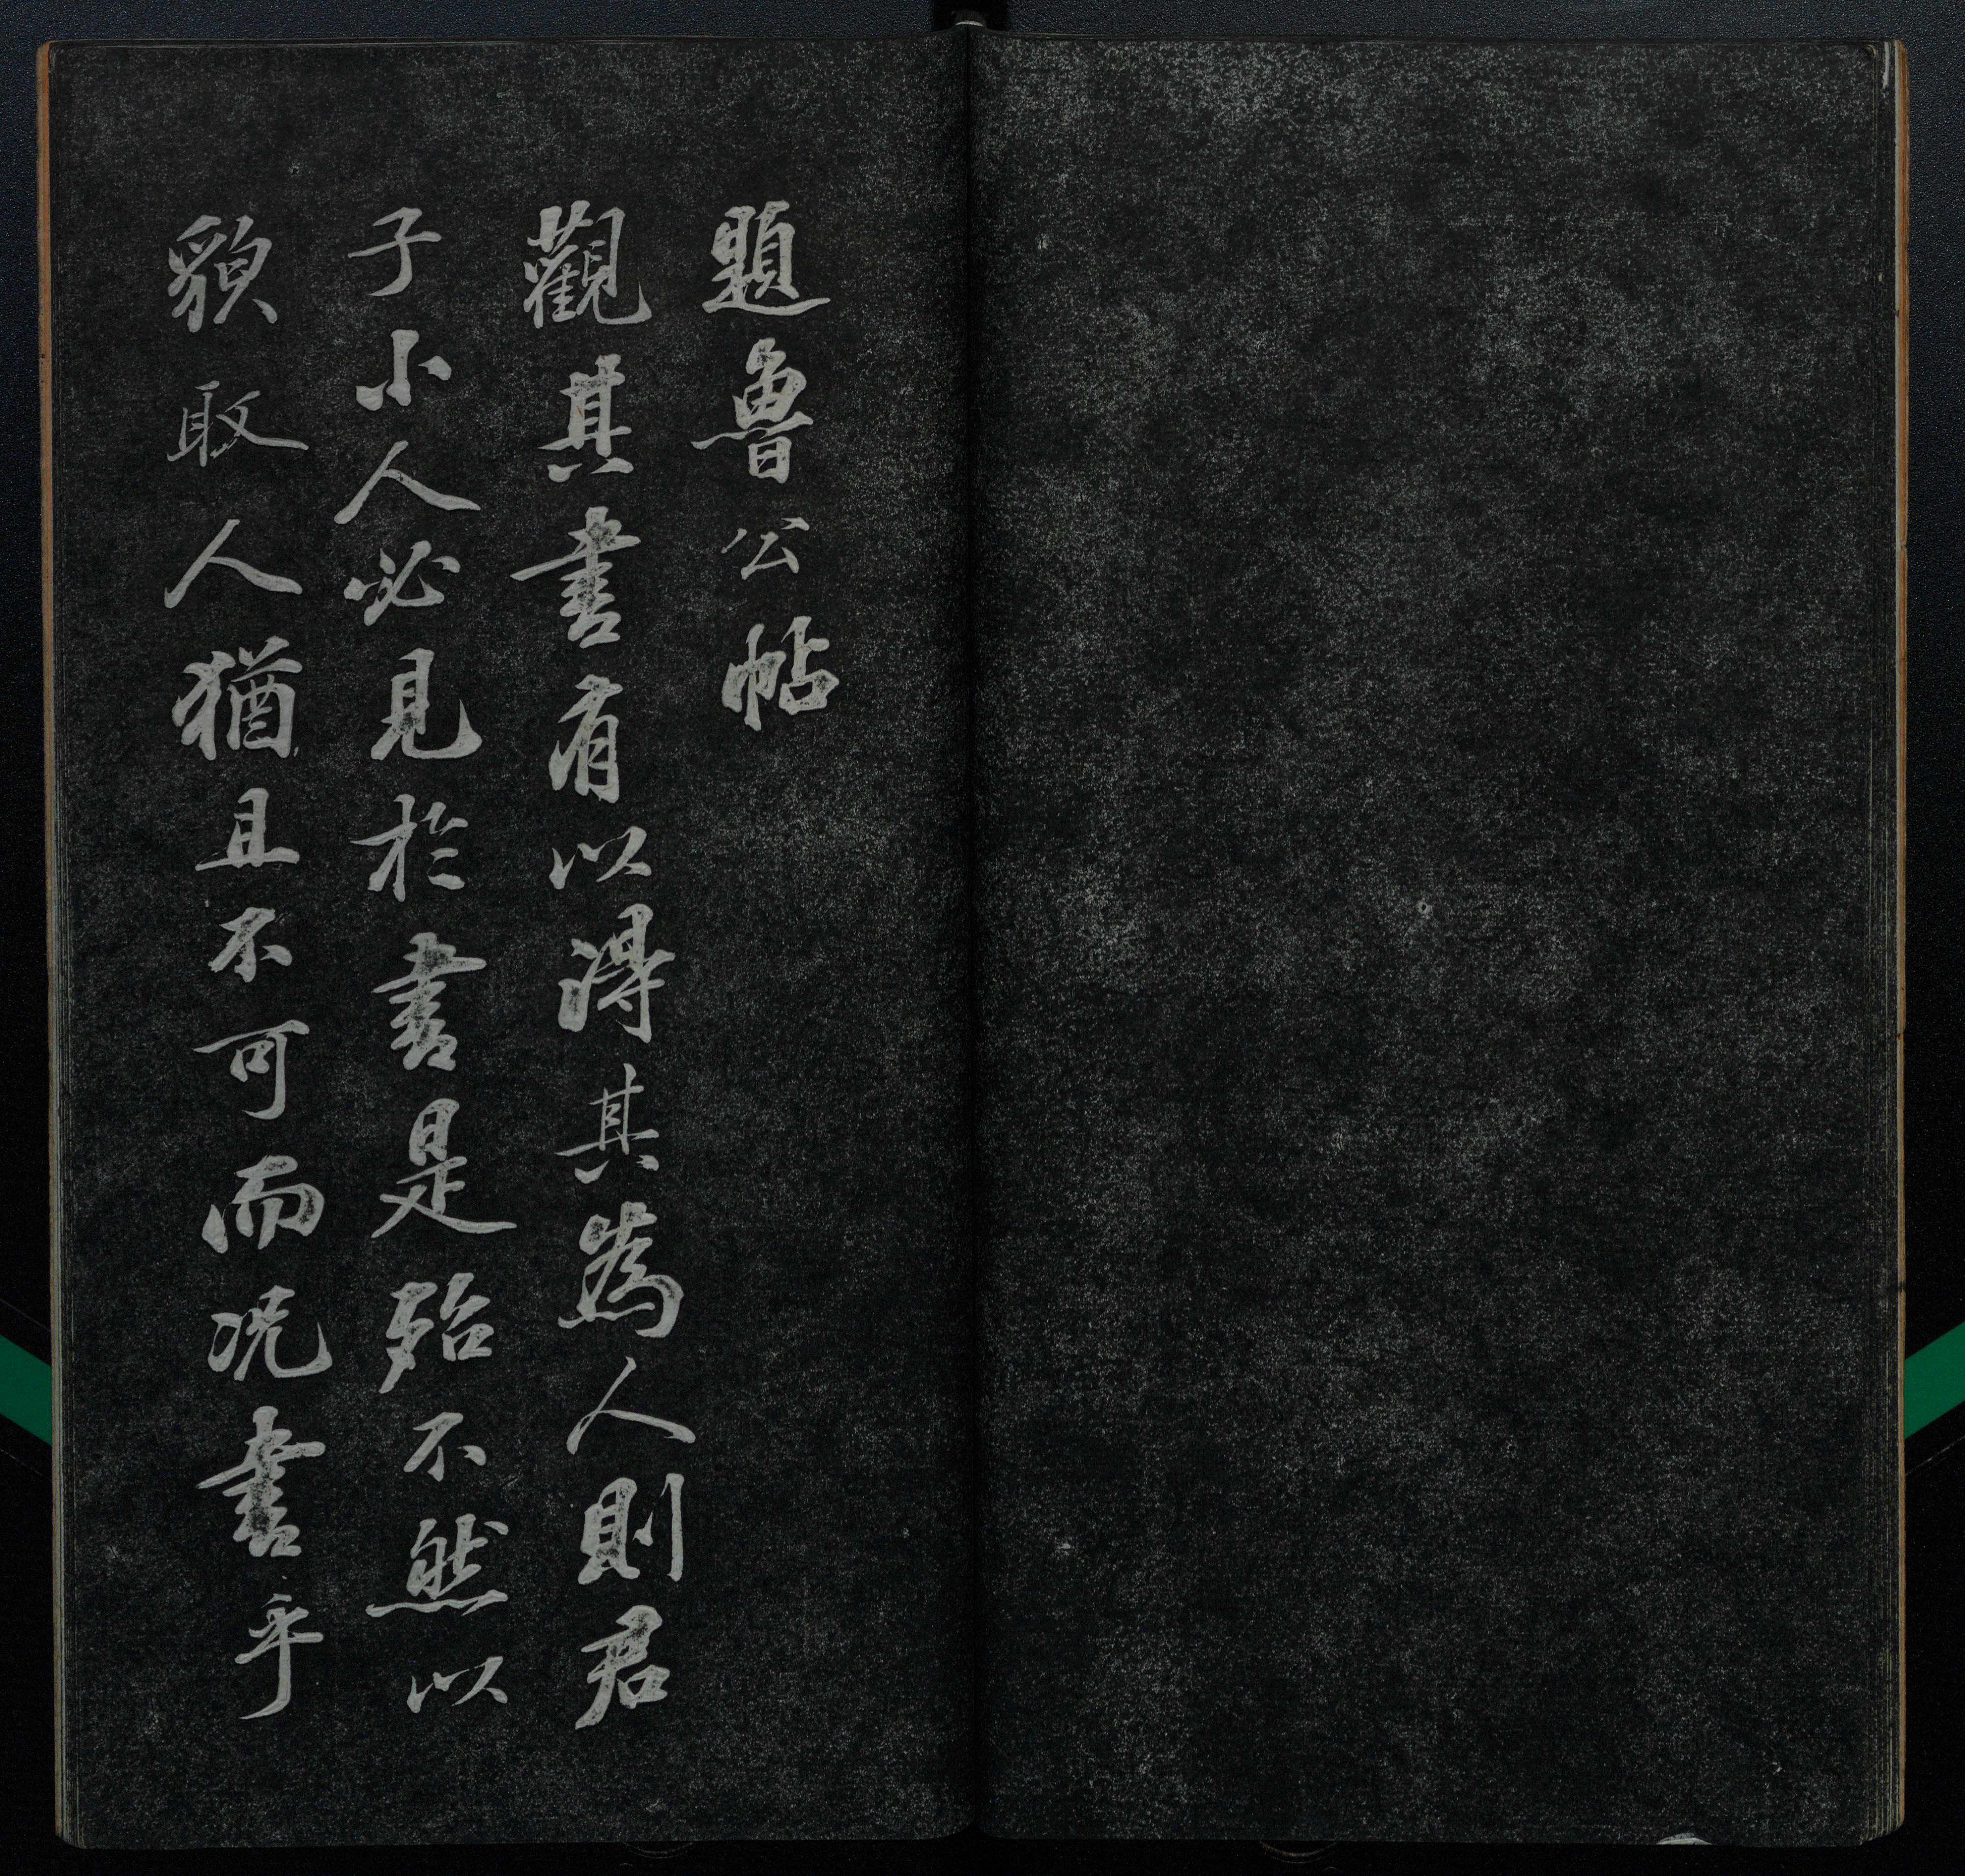 題魯公帖
觀其書有以得其為人則君
子小人必見於書是殆不然以
貌取人猶且不可而況書乎